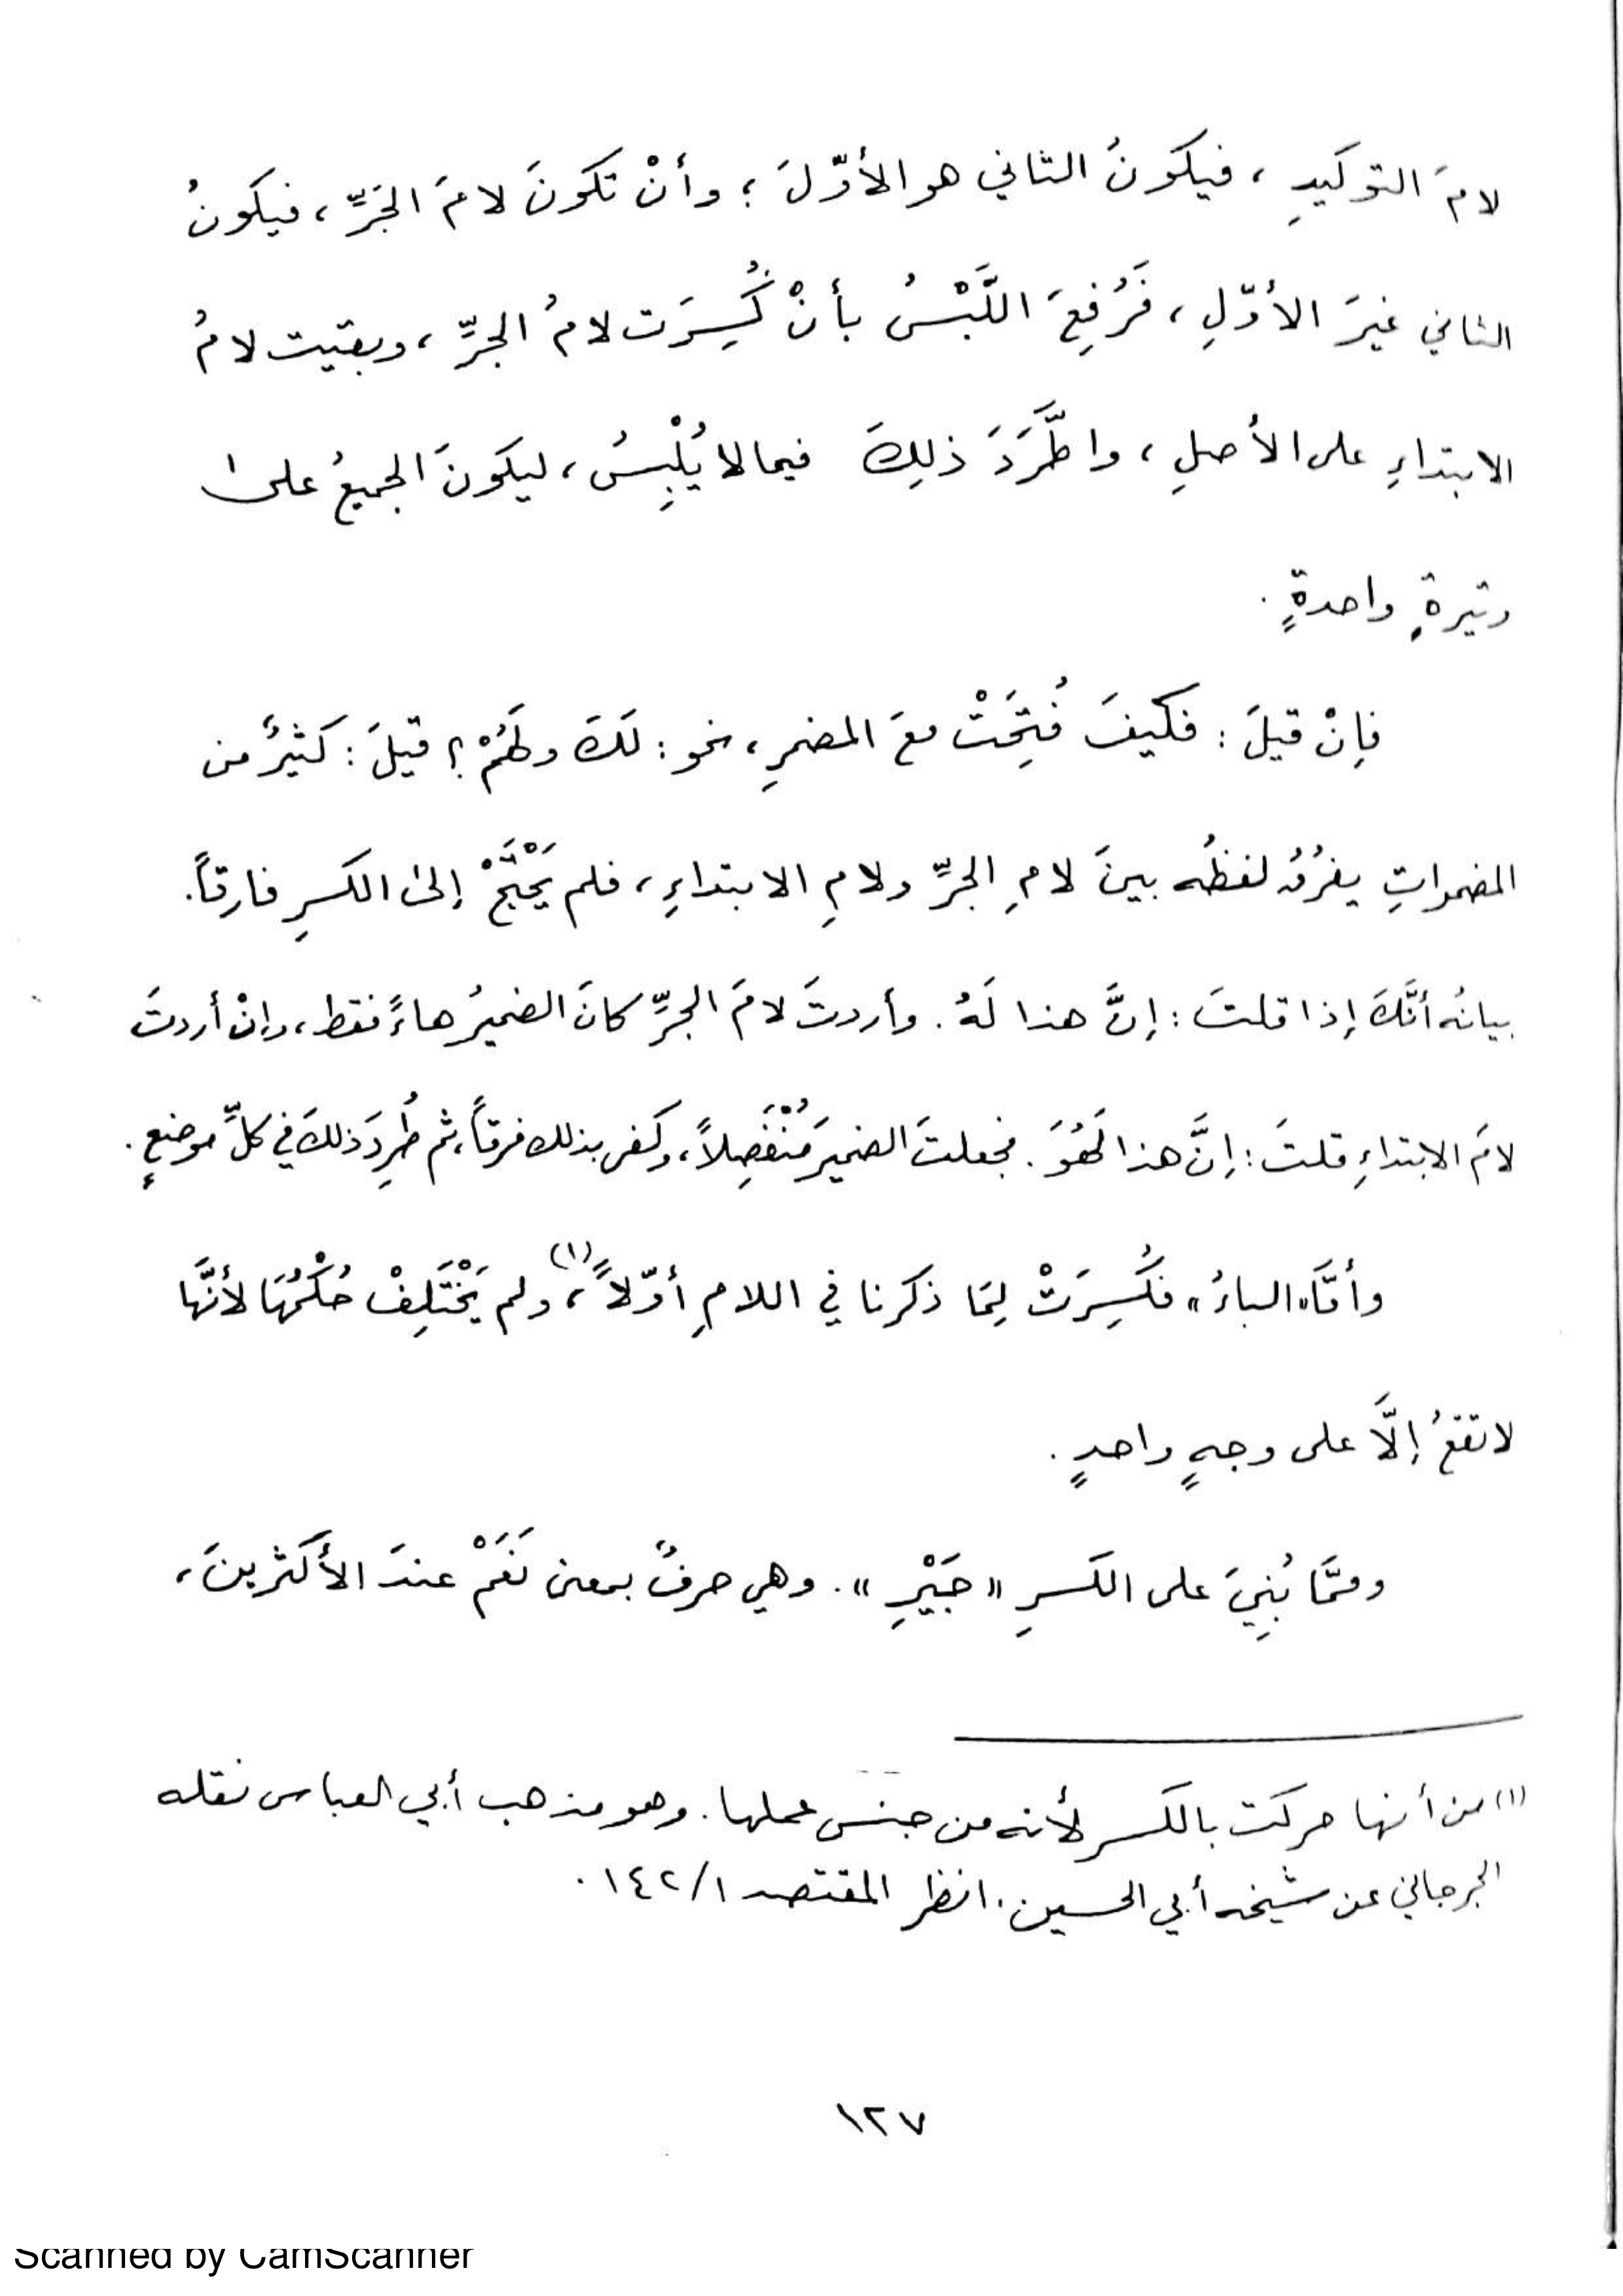 لامَ التوكَيدِ ، فيكونُ الثاني هو الأوّلَ ؛ وأنْ تكونَ لامَ الجَرِّ ، فيكونُ
الثاني غيرَ الأوّلِ ، فَرُفِعَ اللَّبْسُ بأنْ كُسِرَت لامُ الجرِّ ، وبقيت لامُ
الابتداءِ على الأصلِ ، واطَّرَدَ ذلِكَ فيما لا يُلْبِسُ ، ليكونَ الجميعُ على
وتيرةٍ واحدةٍ .
فإنْ قيلَ : فكيفَ فُتِحَتْ معَ المضمرِ ، نحو : لَكَ ولَهُمْ ؟ قيلَ : كَثيرٌ من
المضمراتِ يفرُقُ لفظُه بينَ لامِ الجرِّ ولامِ الابتداءِ ، فلم يَحْتَجْ إلى الكسرِ فارِقاً .
بيانُه أنَّكَ إذا قلتَ : إنَّ هذا لَهُ . وأردتَ لامَ الجرِّ كانَ الضميرُ هاءً فقط ، وإنْ أردتَ
لامَ الابتداءِ قلتَ : إنَّ هذا لَهُوَ . فجعلتَ الضميرَ مُنْفَصِلاً ، وكفى بذلك فرقاً ، ثم طُرِدَ ذلكَ في كلِّ موضعٍ .
وأمَّا « الباءُ » فكُسِرَتْ لِمَا ذكرنا في اللامِ أوّلاً (١) ، ولم يَخْتَلِفْ حُكْمُهَا لأنَّها
لا تقعُ إلَّا على وجهٍ واحدٍ .
وممَّا بُنِيَ على الكَسرِ « جَيْرِ » . وهي حرفٌ بمعنى نَعَمْ عندَ الأكثرينَ ،
(١) من أنها حركت بالكسر لأنه من جنس عملها . وهو مذهب أبي العباس نقله
الجرجاني عن شيخه أبي الحسين . انظر المقتصد ١/١٤٢ .
١٢٧
Scanned by CamScanner